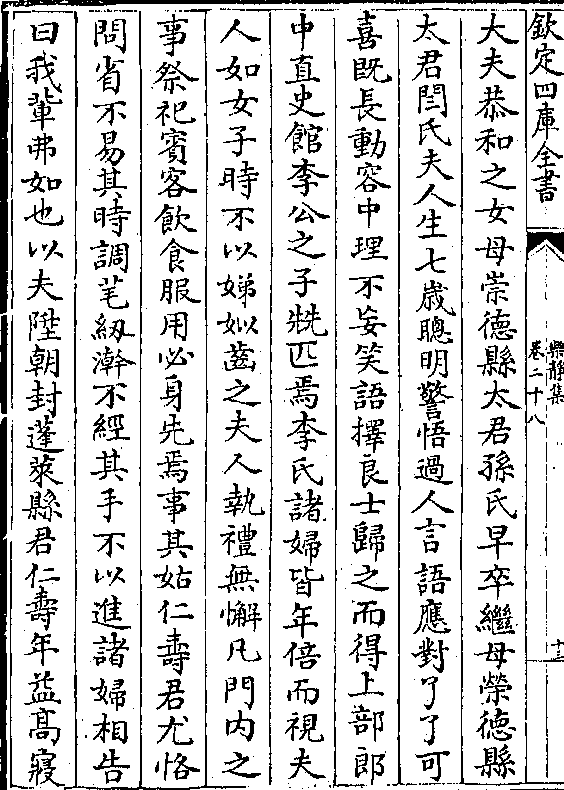 欽定四庫全書
樂靜集
卷二十八
十二
大夫恭和之女母崇德縣太君孫氏早卒繼母榮德縣
太君閆氏夫人生七歲聰明警悟過人言語應對了了可
喜既長動容中理不妄笑語擇良士歸之而得上部郎
中直史館李公之子兟匹焉李氏諸婦皆年倍而視夫
人如女子時不以娣姒齒之夫人執禮無懈凡門內之
事祭祀賓客飲食服用必身先焉事其姑仁壽君尤恪
問省不易其時調芼紉澣不經其手不以進諸婦相告
曰我輩弗如也以夫陞朝封蓬萊縣君仁壽年益高寢